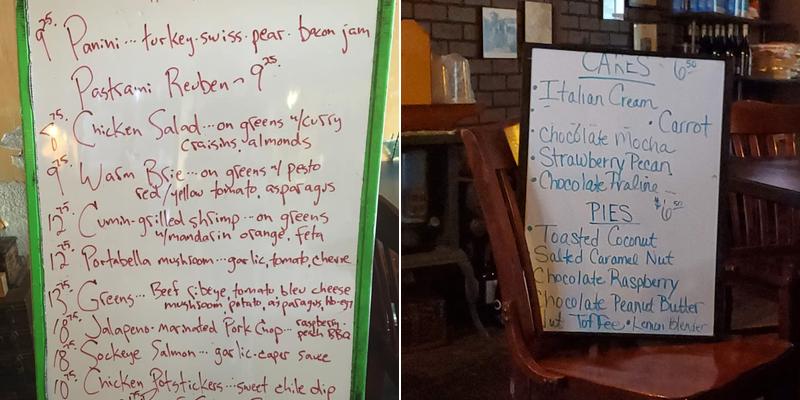 9²⁵· Panini... turkey·swiss·pear·bacon jam
Pastrami Reuben ~ 9²⁵
8⁷⁵· Chicken Salad...on greens w/curry
craisins·almonds
9²⁵· Warm Brie... on greens w/ pesto
red/yellow tomato, asparagus
12⁷⁵· Cumin-grilled shrimp...on greens
w/mandarin orange, feta
12⁷⁵· Portabella mushroom...garlic, tomato, cheese
13⁷⁵· Greens... Beef ribeye, tomato bleu cheese
mushroom, potato, asparagus, hb-egg
18⁷⁵· Jalapeno-marinated Pork Chop... raspberry-
peach BBQ
18⁷⁵· Sockeye Salmon... garlic-caper sauce
10⁷⁵· Chicken Potstickers...sweet chile dip
CAKES - 6⁵⁰
• Italian Cream
• Carrot
• Chocolate Mocha
• Strawberry Pecan
• Chocolate Praline
PIES $6⁵⁰
• Toasted Coconut
Salted Caramel Nut
Chocolate Raspberry
Chocolate Peanut Butter
Nut Toffee • Lemon Blender